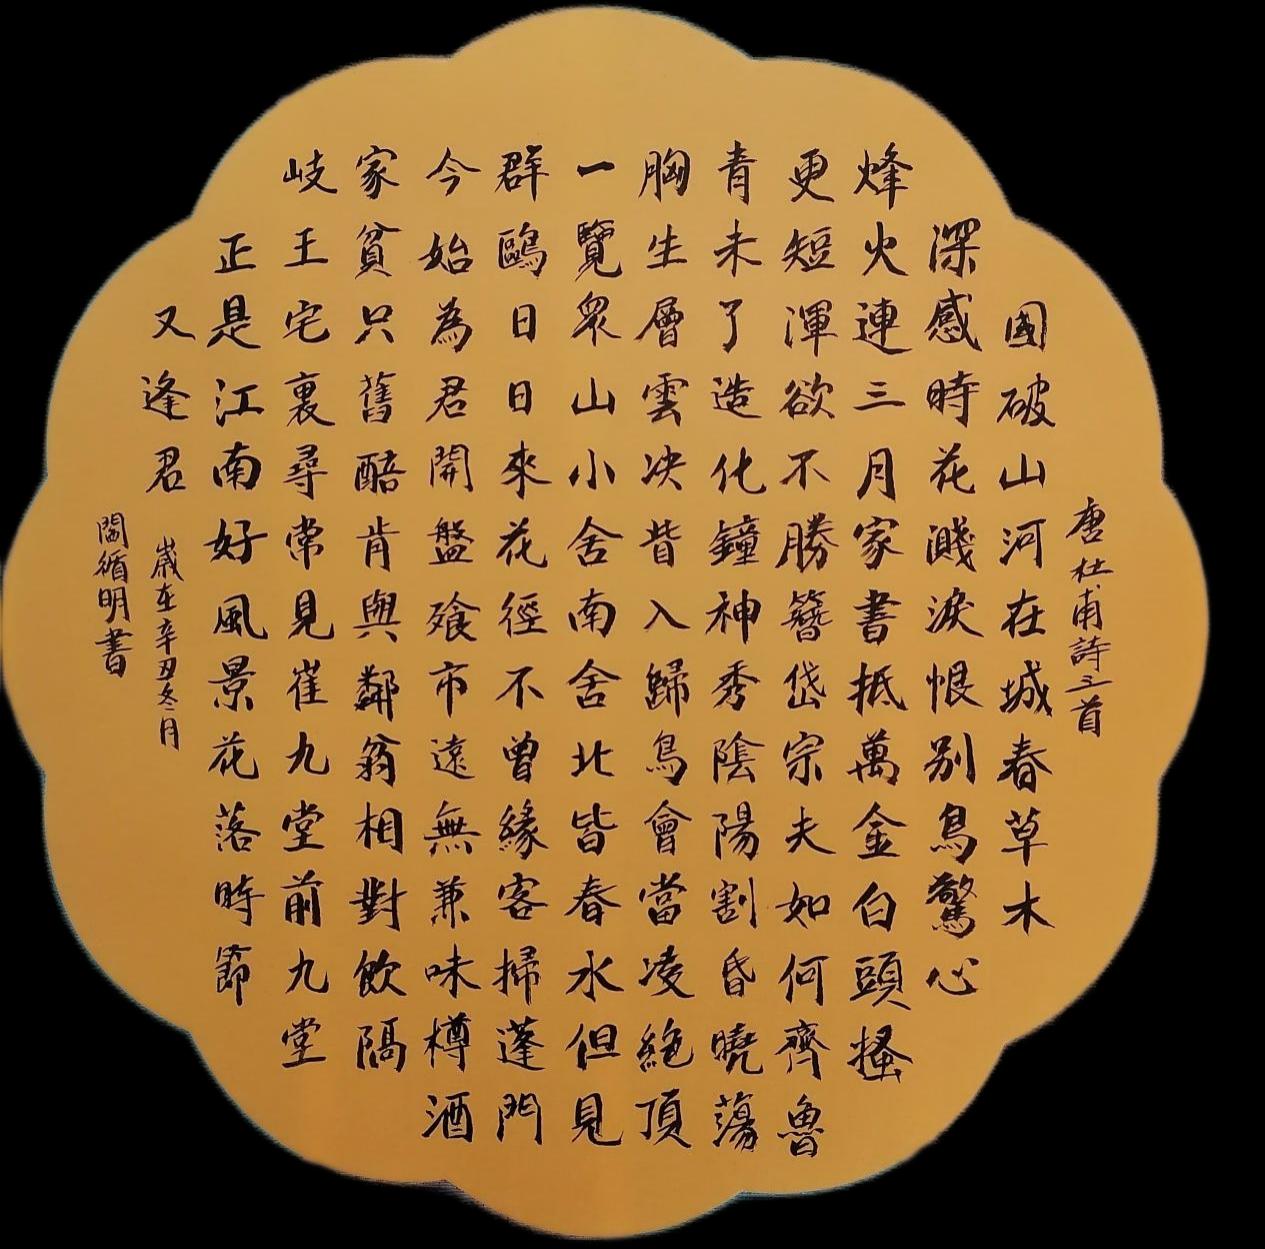 唐杜甫詩三首
國破山河在城春草木
深感時花濺淚恨別鳥驚心
烽火連三月家書抵萬金白頭搔
更短渾欲不勝簪岱宗夫如何齊魯
青未了造化鐘神秀陰陽割昏曉蕩
胸生層雲决眥入歸鳥會當凌絕頂
一覽眾山小舍南舍北皆春水但見
群鷗日日來花徑不曾緣客掃蓬門
今始為君開盤飧市遠無兼味樽酒
家貧只舊醅肯與鄰翁相對飲隔
岐王宅裏尋常見崔九堂前九堂
正是江南好風景花落時節
又逢君
歲在辛丑冬月
閻循明書